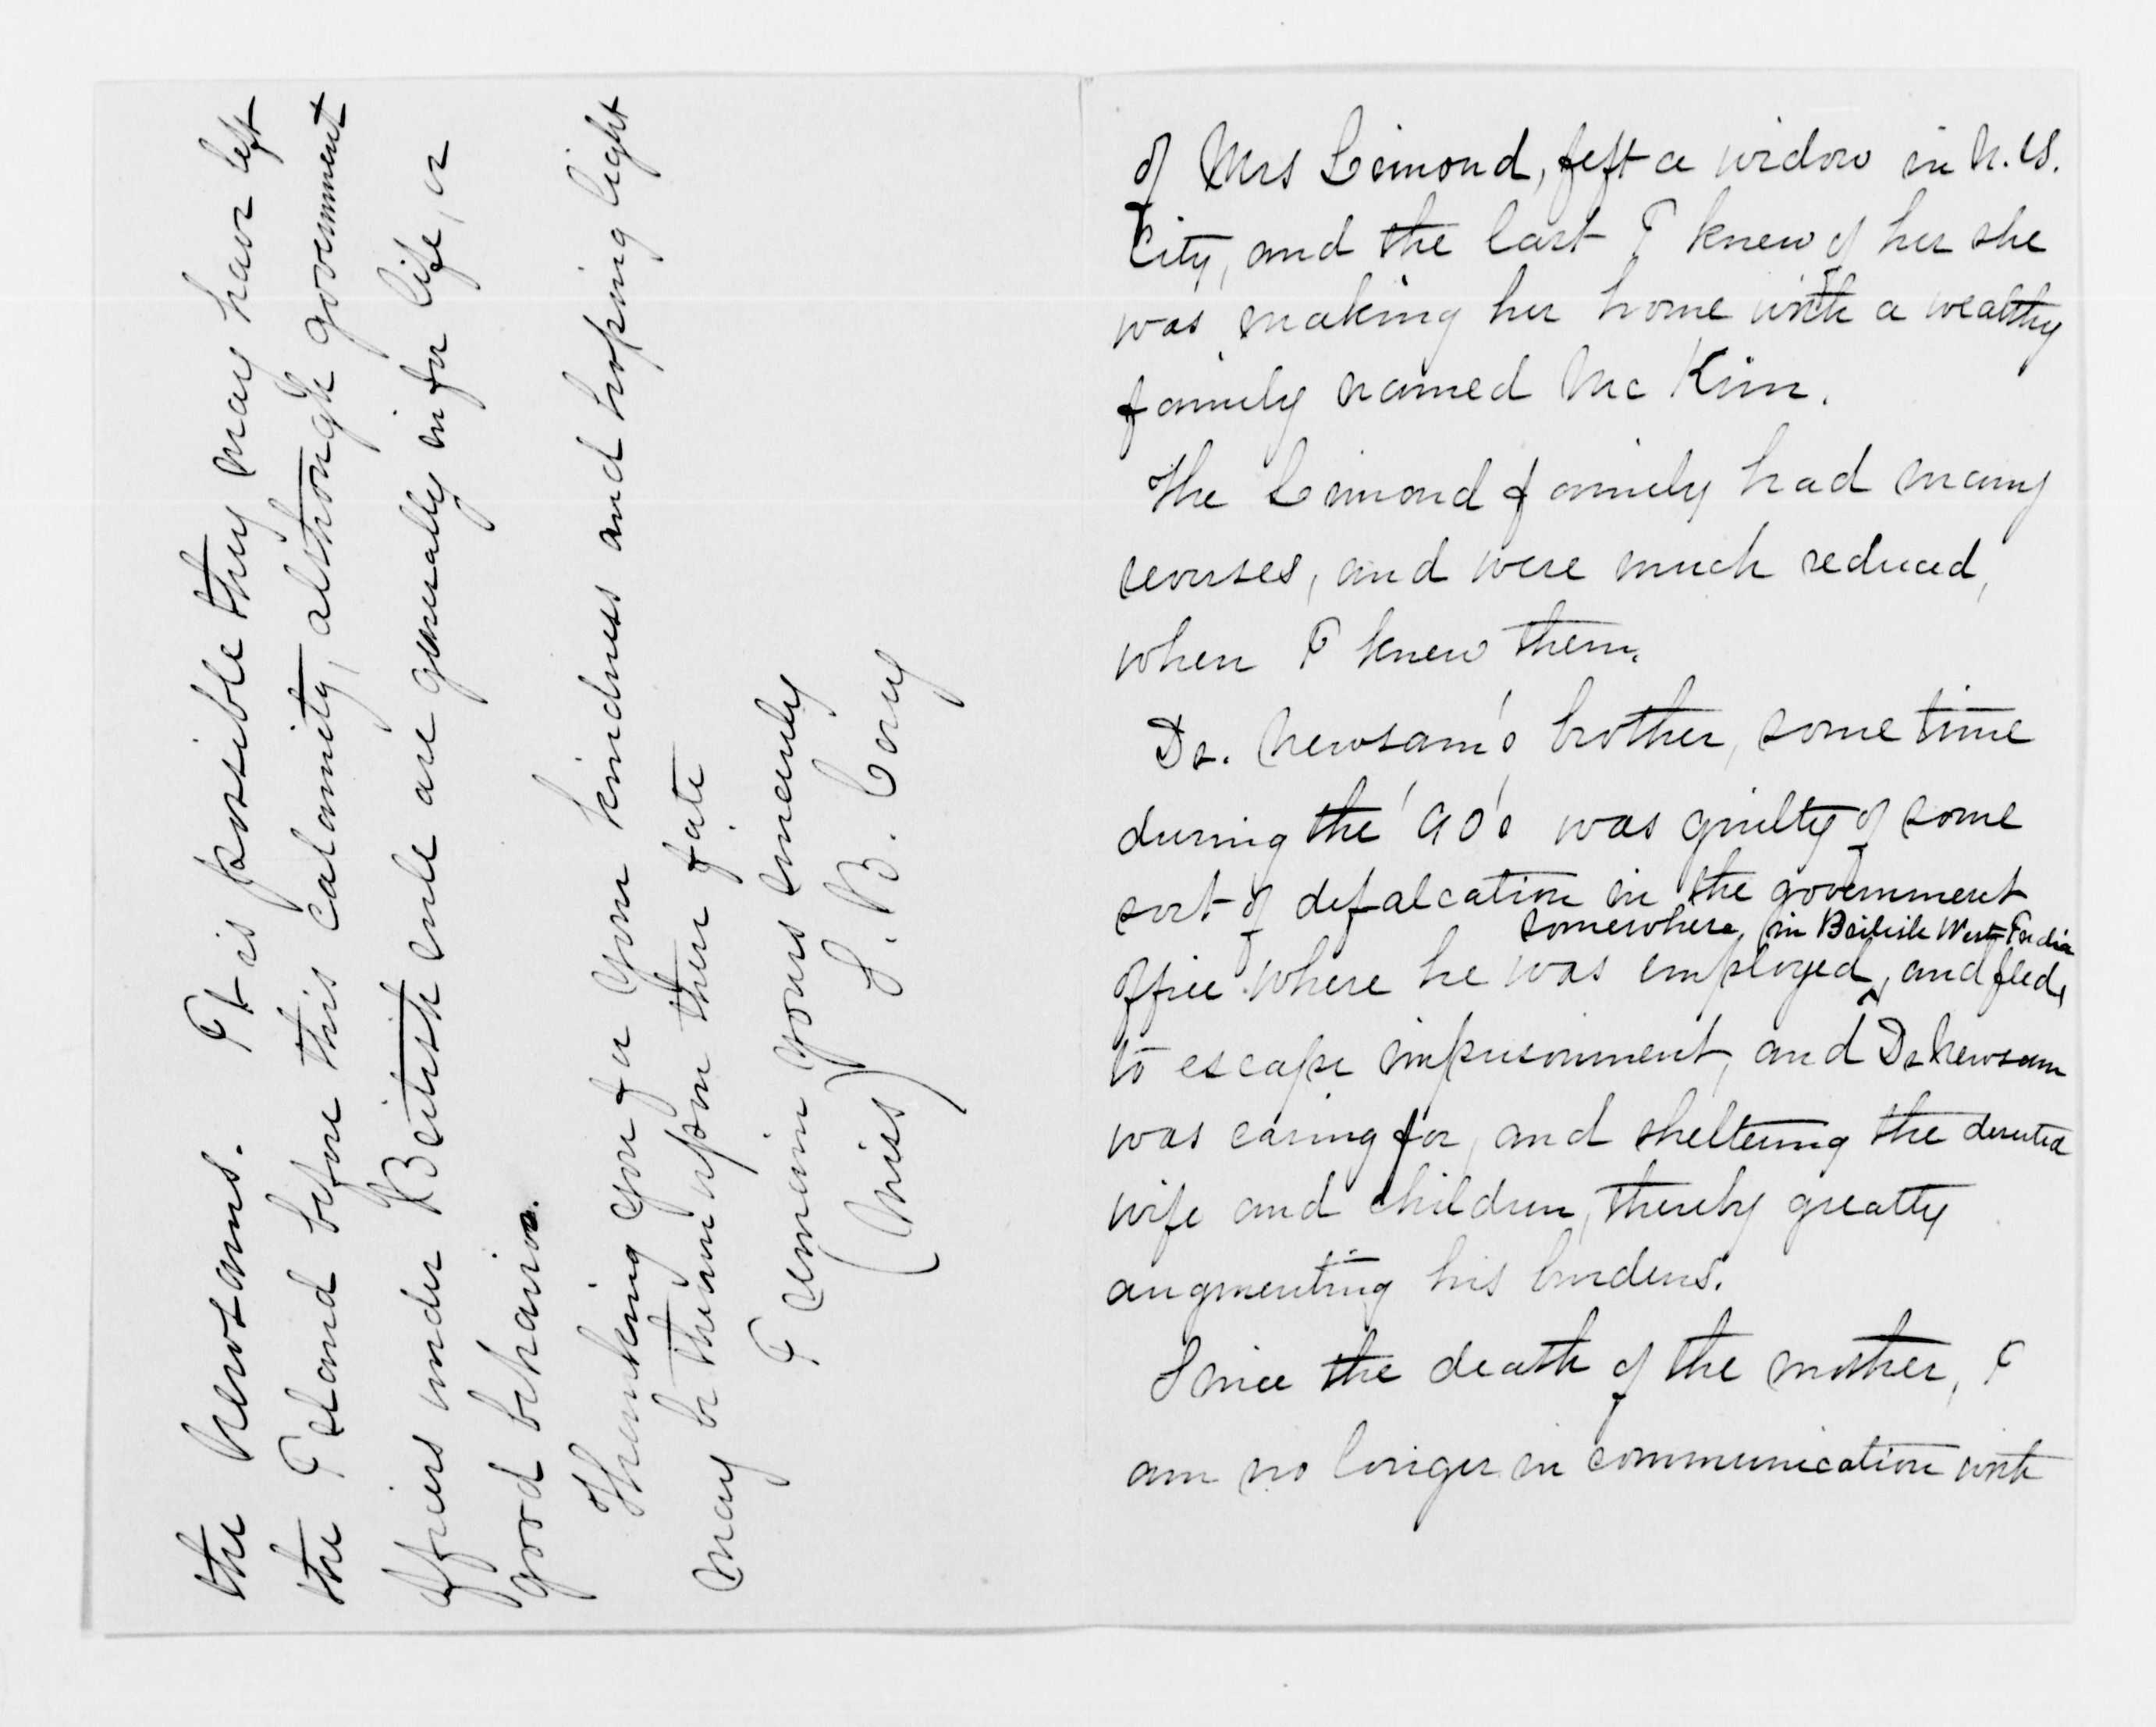 of Mrs Simond, left a widow in N.Y.
City, and the last I knew of her she
was making her home with a wealthy
family named McKim.
The Simond family had many
reverses, and were much reduced,
when I knew them.
Dr. Newsam's brother, some time
during the '90's was guilty of some
sort of defalcation in the government
somewhere in British West India
office where he was employed, and fled,
to escape imprisonment, and Dr Newsam
was caring for, and sheltering the deserted
wife and children, thereby greatly
augmenting his burdens.
Since the death of the mother, I
am no longer in communication with
the Newsams. It is possible they may have left
the Island before this calamity, although government
offices under British rule are generally in for life, or
good behavior.
Thanking you for your kindness and hoping light
may be thrown upon their fate
I remain yours sincerely
(Miss) S. B. Cory